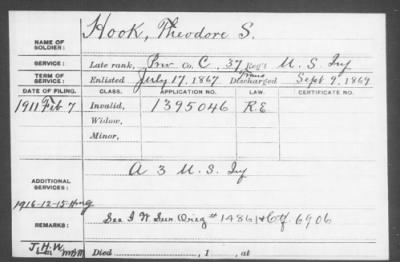 NAME OF SOLDIER: Hook, Theodore S.
SERVICE: Late rank, Priv Co. C, 37 Reg't U. S. Inf
TERM OF SERVICE: Enlisted July 17, 1867 Trans Discharged Sept 9, 1869
DATE OF FILING. CLASS. APPLICATION NO. LAW. CERTIFICATE NO.
1911 Feb 7 Invalid, 1395046 R.E
Widow,
Minor,
ADDITIONAL SERVICES: A 3 U. S. Inf
1916-12-15
REMARKS: See I W Orig # 14861 & Ctf. 6906
J.H.W. Died , 1 , at